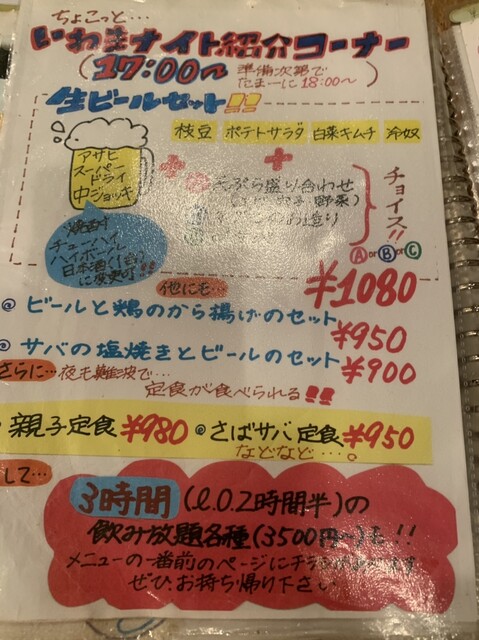 ちょこっと…
いわきナイト紹介コーナー
(17:00〜 準備次第で
たまーに18:00〜)
生ビールセット!!
枝豆 ポテトサラダ 白菜キムチ 冷奴
アサヒ
スーパー
ドライ
中ジョッキ
+ +
天ぷら盛り合わせ
野菜)
お造り
チョイス!!
Ⓐ or Ⓑ or Ⓒ
焼酎
チューハイ
ハイボール
日本酒(1合)
に変更可!!
¥1080
他にも…
◎ ビールと鶏のから揚げのセット
¥950
◎ サバの塩焼きとビールのセット
¥900
さらに…夜も難波で…
定食が食べられる!!
親子定食 ¥980 ◎ さばサバ定食 ¥950
などなど…。
して…
3時間(L.O.2時間半)の
飲み放題各種(3500円〜)も!!
メニューの一番前のページにチラシが
ぜひお持ち帰り下さい